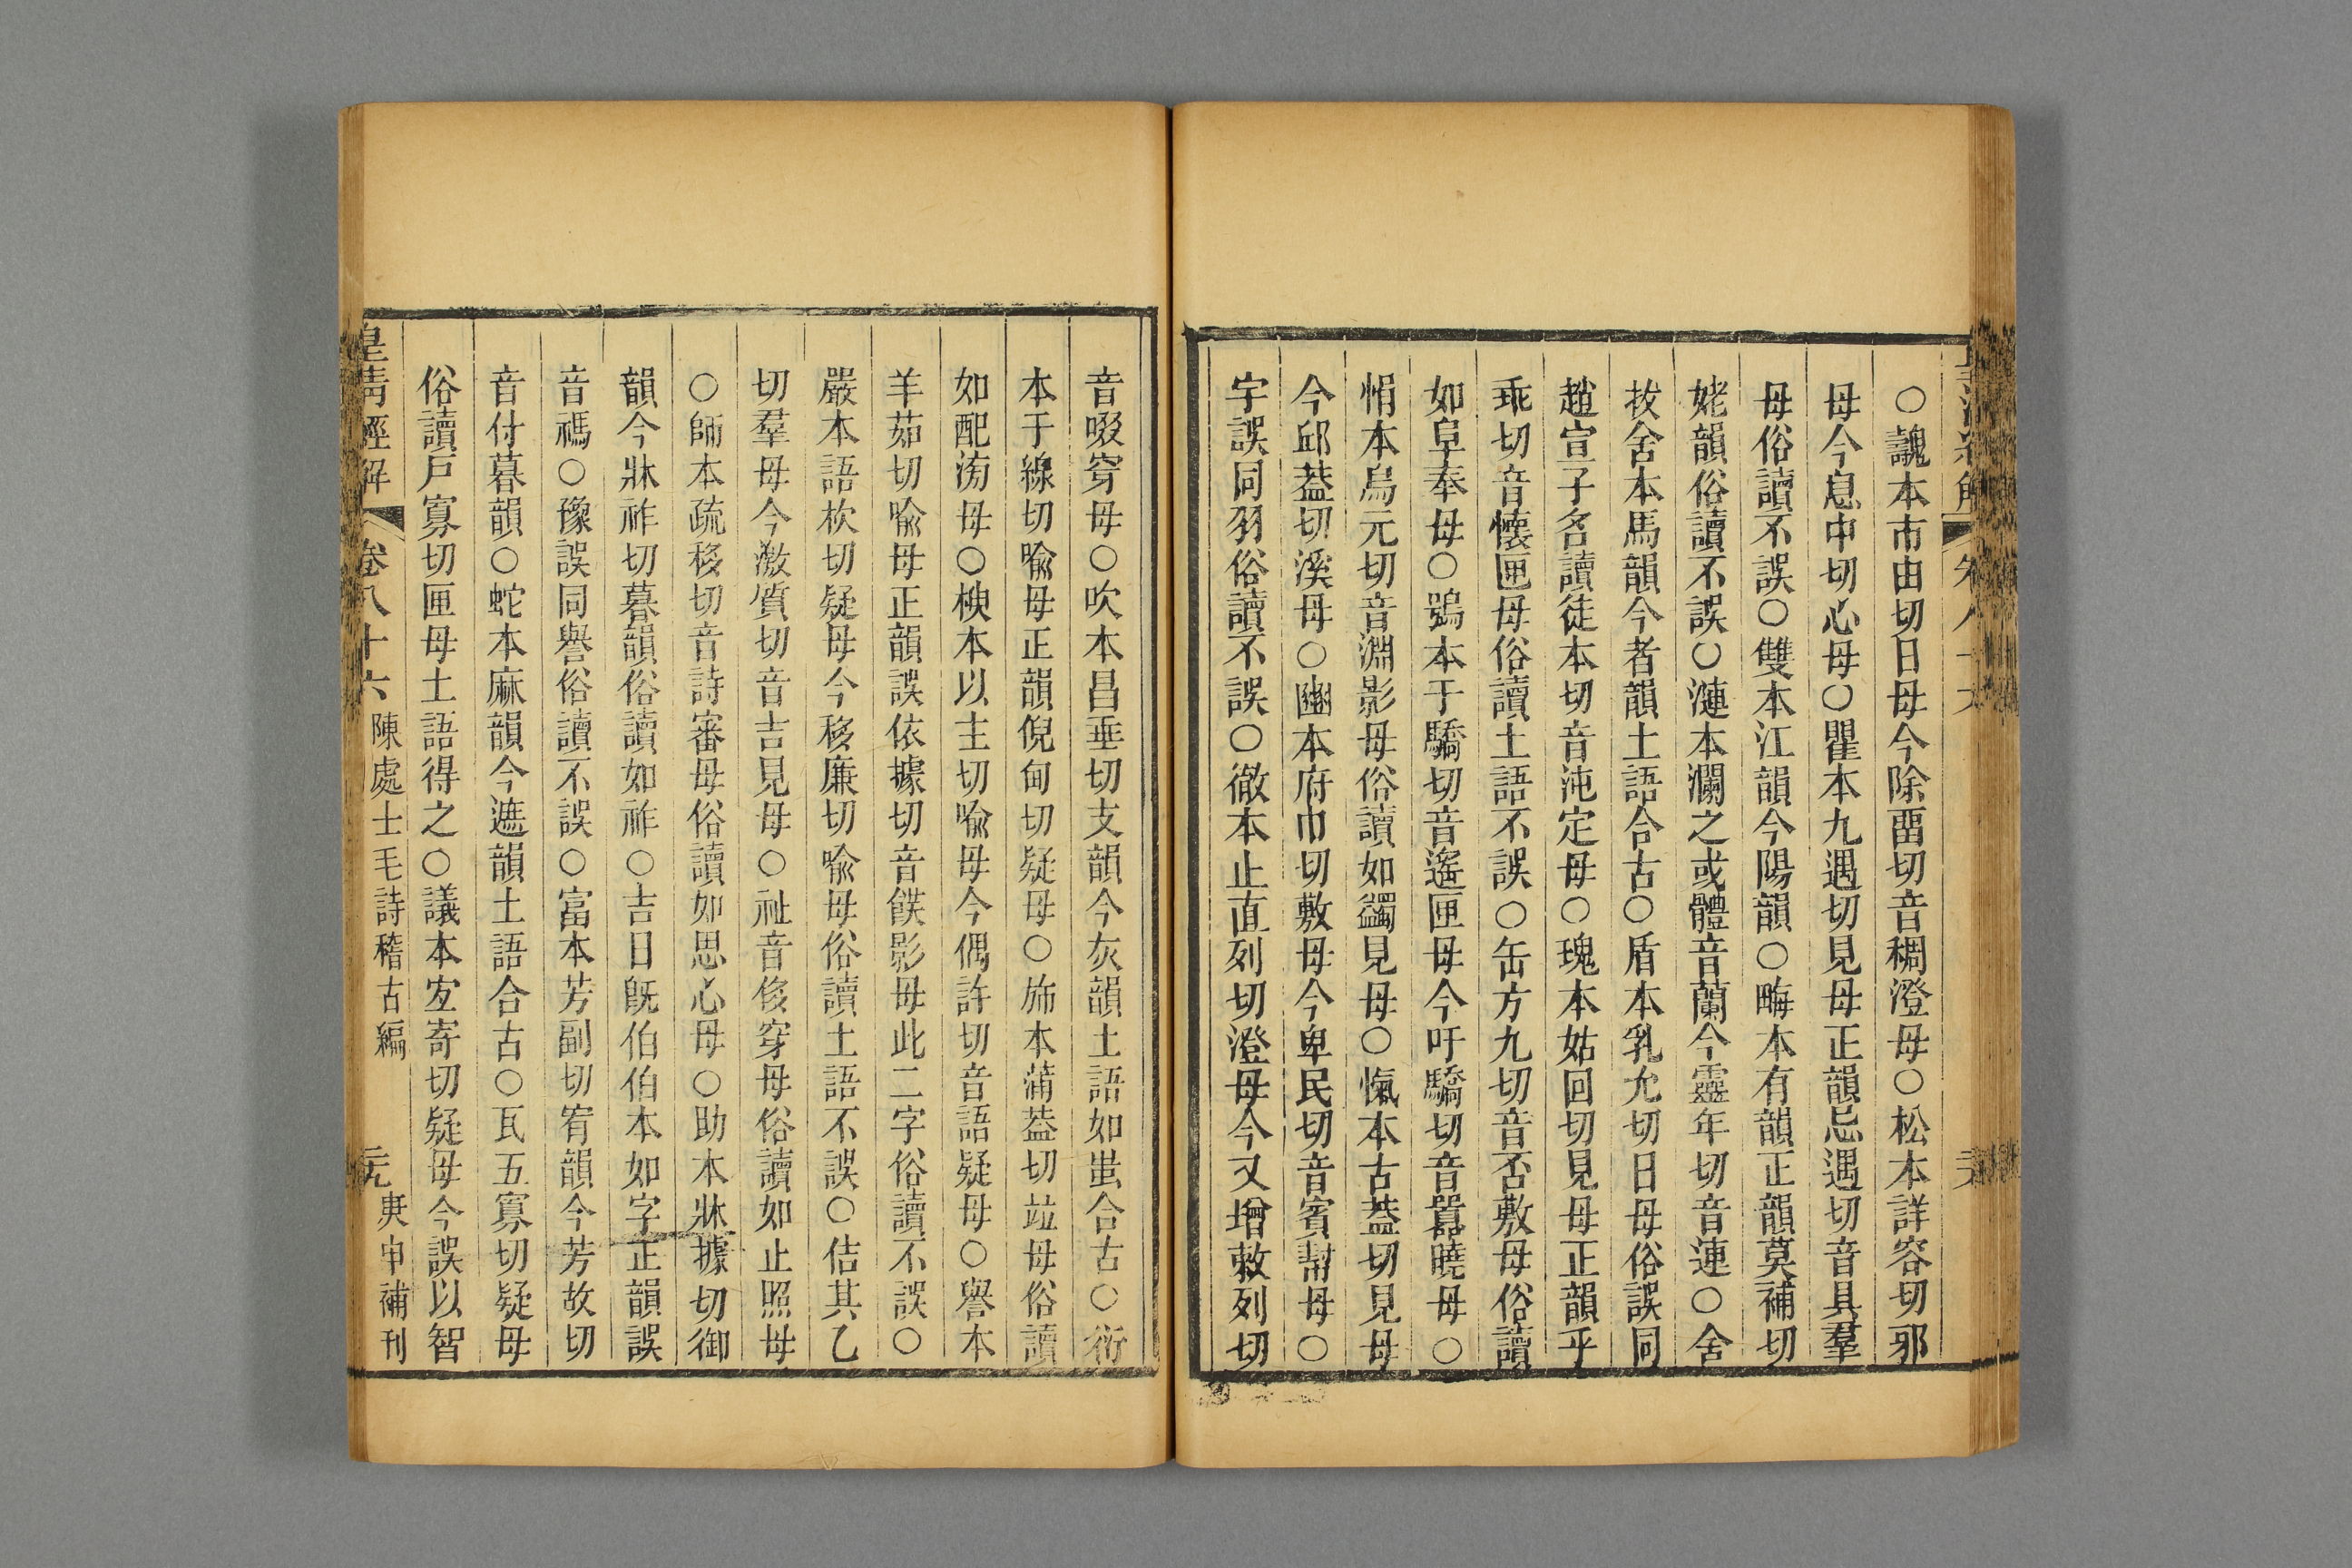 ○魗本市由切日母今除畱切音稠澄母○松本詳容切邪
母今息中切心母○瞿本九遇切見母正韻忌遇切音具羣
母俗讀不誤○雙本江韻今陽韻○畮本有韻正韻莫補切
姥韻俗讀不誤○漣本瀾之或體音蘭今靈年切音連○舍
拔舍本馬韻今者韻土語合古○盾本乳允切日母俗誤同
趙宣子名讀徒本切音沌定母○瑰本姑回切見母正韻乎
乖切音懷匣母俗讀土語不誤○缶方九切音否敷母俗讀
如阜奉母○鴞本于驕切音遙匣母今吁驕切音囂曉母○
悁本烏元切音淵影母俗讀如蠲見母○愾本古葢切見母
今邱葢切溪母○豳本府巾切敷母今卑民切音賓幫母○
字誤同羽俗讀不誤○徹本止直列切澄母今又增敕列切
音啜穿母○吹本昌垂切支韻今灰韻土語如蚩合古○衍
本于線切喻母正韻倪甸切疑母○斾本蒲葢切竝母俗讀
如配滂母○楰本以主切喻母今偶許切音語疑母○譽本
羊茹切喻母正韻誤依據切音飫影母此二字俗讀不誤○
嚴本語杴切疑母今移廉切喻母俗讀土語不誤○佶其乙
切羣母今激質切音吉見母○祉音侈穿母俗讀如止照母
○師本疏移切音詩審母俗讀如思心母○助本牀據切御
韻今牀祚切暮韻俗讀如祚○吉日旣伯伯本如字正韻誤
音禡○豫誤同譽俗讀不誤○富本芳副切宥韻今芳故切
音付暮韻○蛇本麻韻今遮韻土語合古○瓦五寡切疑母
俗讀戶寡切匣母土語得之○議本宐寄切疑母今誤以智
皇清經解 卷八十六 陳處士毛詩稽古編 元 庚申補刊